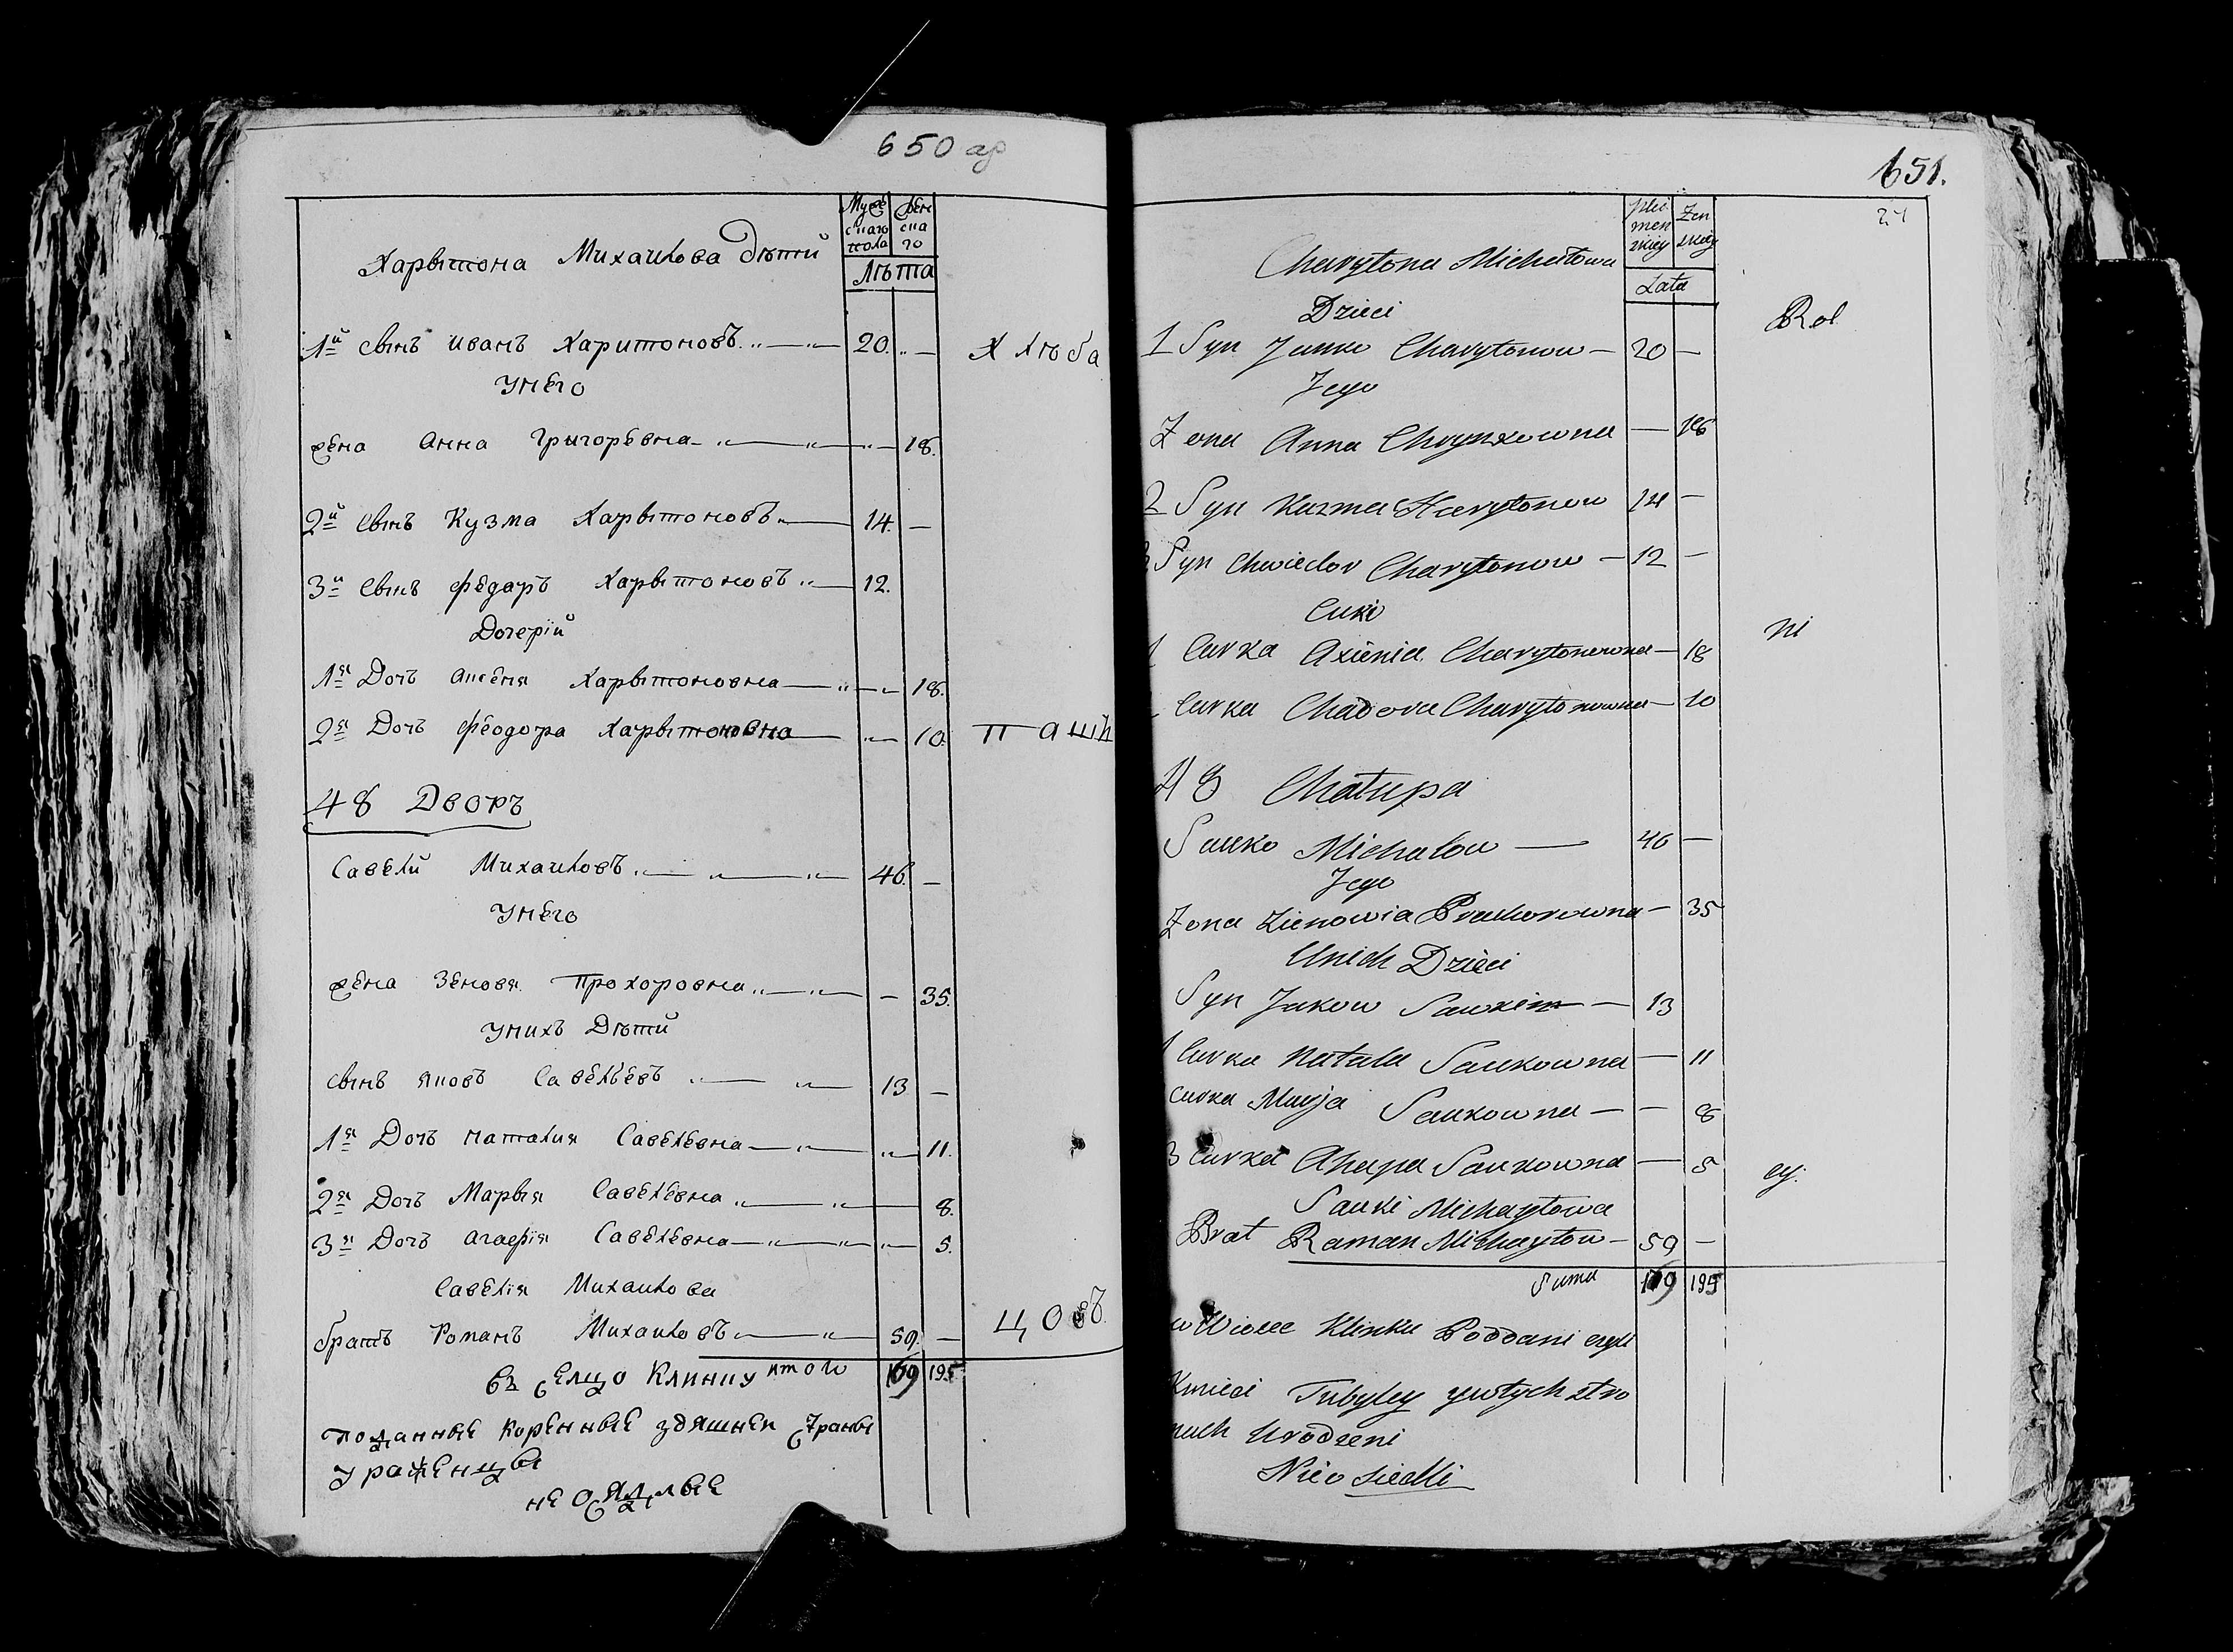 650 ар
Мужескаго пола Женскаго
Харытона Михаилова Дѣтй
Лѣта
1й сынъ иванъ Харитоновъ 20. —
Хлѣба
унего
жена анна Григорѣвна — 18.
2й сынъ Кузма Харытоновъ 14. —
3й сынъ федаръ Харытоновъ 12.
Дочерій
1я Дочъ аксеня Харытоновна — 18.
2я Дочъ феодора Харытоновна — 10.
паши
48 Дворъ
Савели Михаиловъ 46. —
унего
жена Зеновя Прохоровна — 35.
унихъ Дѣтй
сынъ яковъ Савелѣвъ 13 —
1я Дочъ наталия Савелевна — 11.
2я Дочъ Марыя Савелевна — 8.
3я Дочъ агафія Савелевна — 5.
Савелія Михаилова
братъ Романъ Михаиловъ 59. —
цовъ
въ селцо Клинку итого 169 195
подданные коренные здяшнея стране
ураженцы
не оседлые
651.
24
Męzkiey Zenskiey
Charytona Michałowa
Lata
Dzieci
Rol
1 Syn Janko Charytonow — 20 —
Jego
Zona Anna Chrynkowna — 18
2 Syn Kuzma Harytonow 14 —
3 Syn Chwiedor Charytonow — 12 —
Curki
ni
1 Curka Axienia Charytonowna — 18
Curka Chadora Charytonowna — 10
48 Chałupa
Sauko Michałow — 46 —
Jego
Zona Zienowia Pracharowna — 35
Unich Dzieci
Syn Jakow Sawkin — 13
1 Curka Natala Saukowna — 11
Curka Marja Saukowna — — 8
3 Curka Ahapa Saukowna — 5
cy.
Sauki Michayłowa
Brat Raman Michayłow — 59 —
Suma 169 195
w Wiosce Klinku Poddani czyli
Kmieci Tubylcy ywtych stro
nach Urodzeni
Nieosiedli